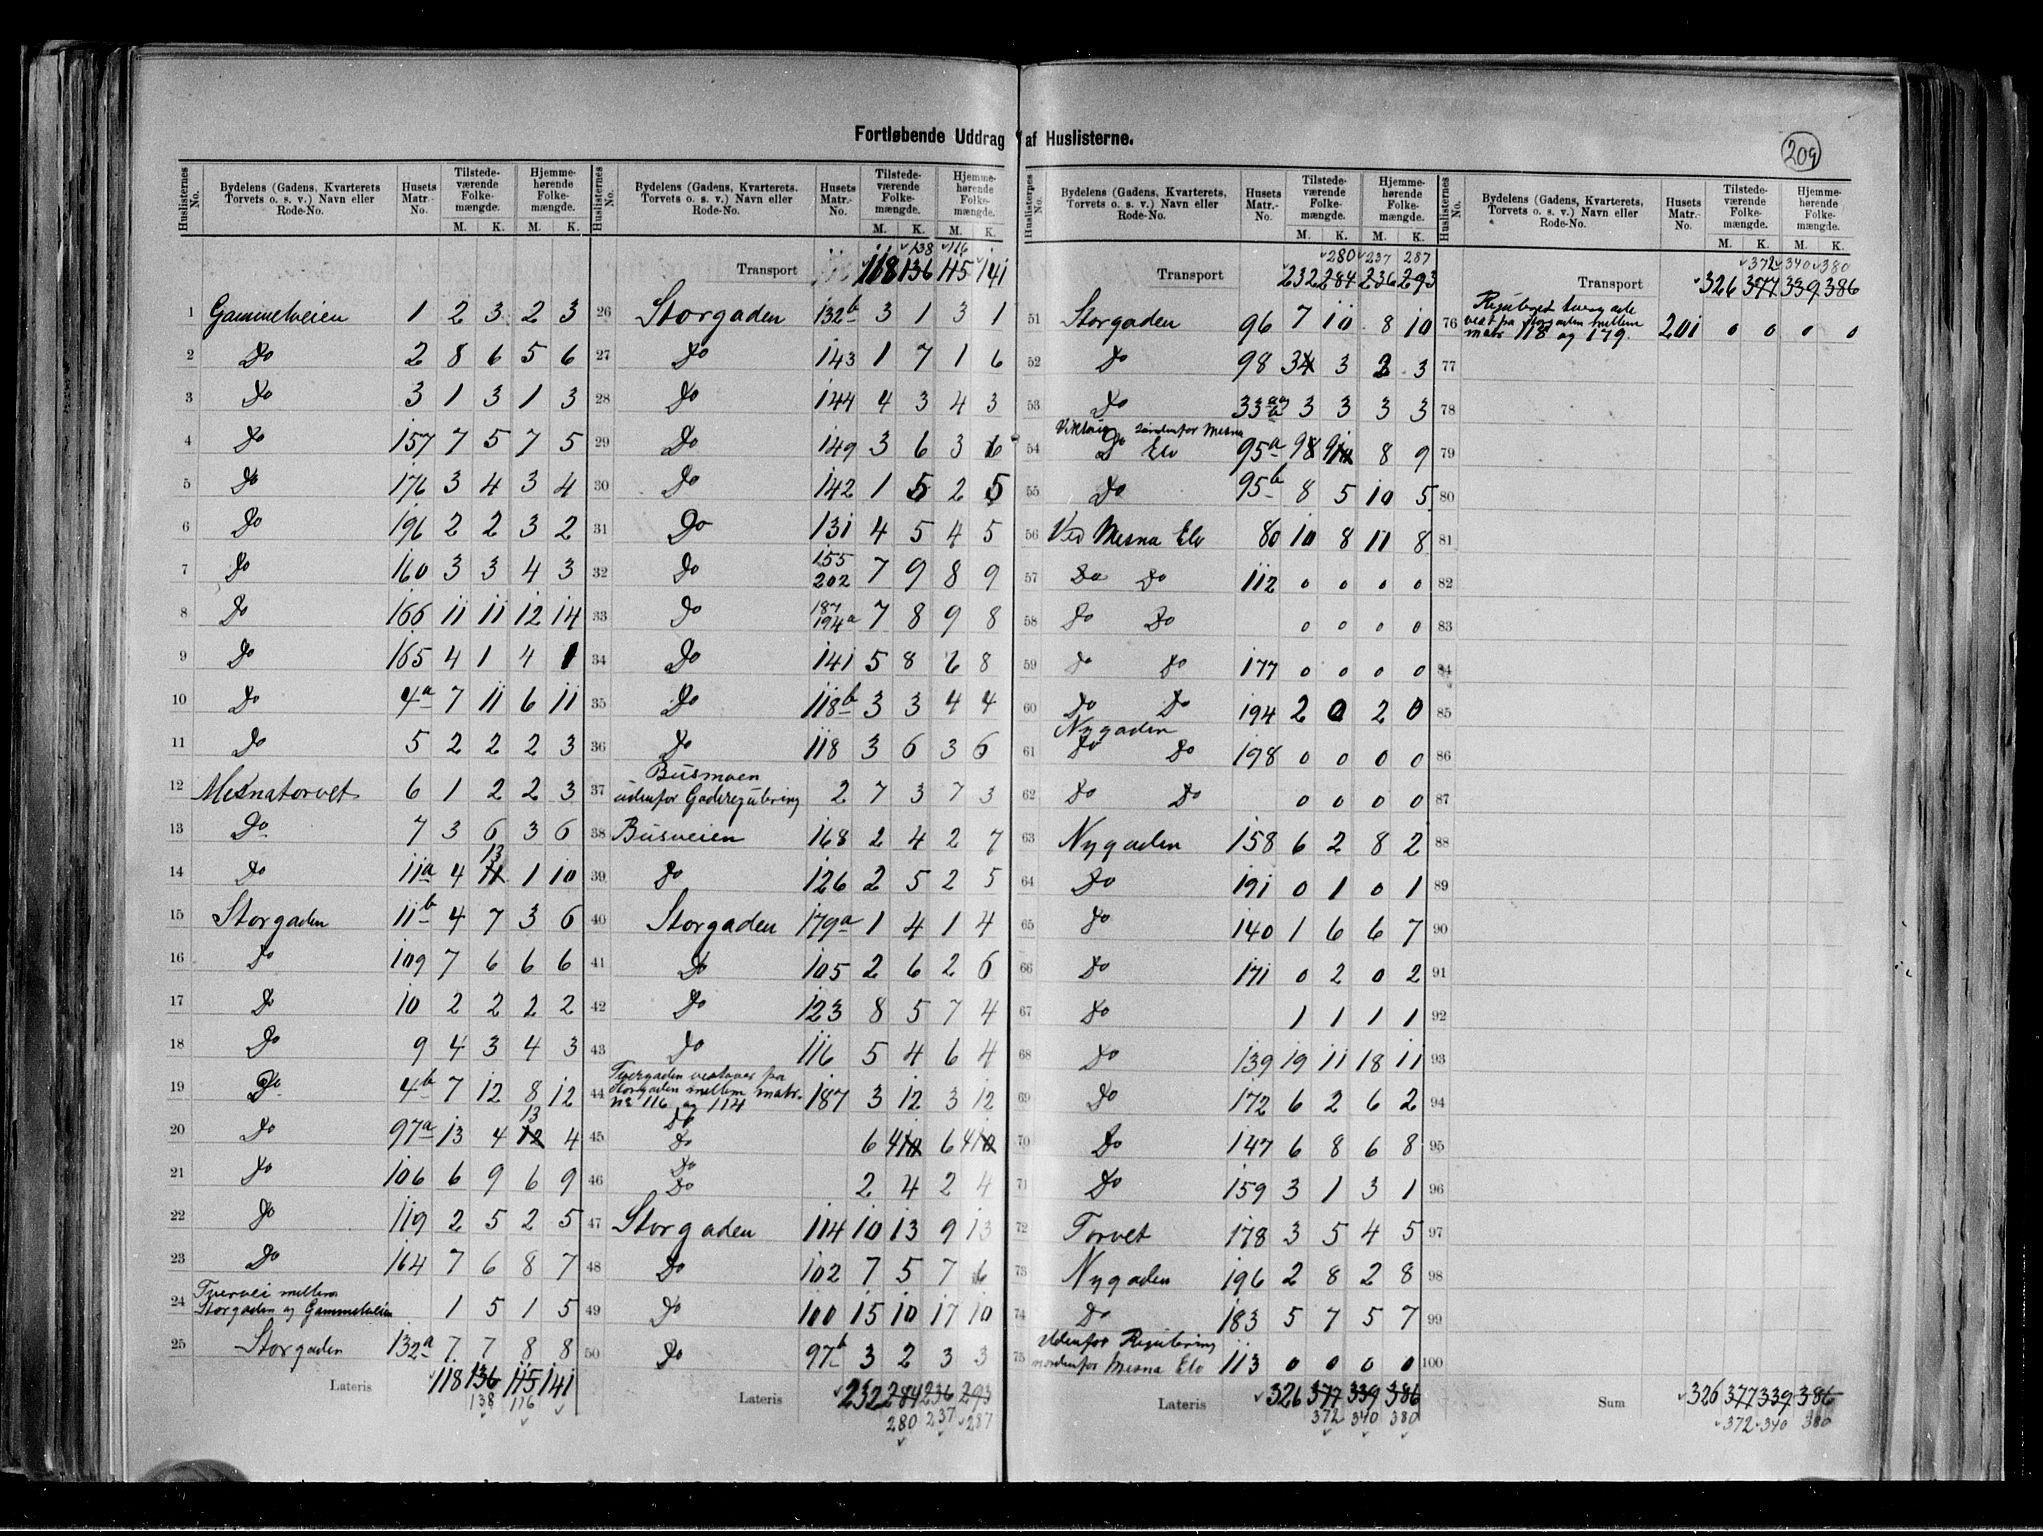 Fortløbende Uddrag af Huslisterne.
209
Huslisternes No. | Bydelens (Gadens, Kvarterets Torvets o. s. v.) Navn eller Rode-No. | Husets Matr.-No. | Tilstede-værende Folke-mængde. M. K. | Hjemme-hørende Folke-mængde. M. K.
1 Gammelveien 1 2 3 2 3
2 Do 2 8 6 5 6
3 Do 3 1 3 1 3
4 Do 157 7 5 7 5
5 Do 176 3 4 3 4
6 Do 196 2 2 3 2
7 Do 160 3 3 4 3
8 Do 166 11 11 12 14
9 Do 165 4 1 4 1
10 Do 4a 7 11 6 11
11 Do 5 2 2 2 3
12 Mesnatorvet 6 1 2 2 3
13 Do 7 3 6 3 6
14 Do 11a 4 13 1 10
15 Storgaden 11b 4 7 3 6
16 Do 109 7 6 6 6
17 Do 10 2 2 2 2
18 Do 9 4 3 4 3
19 Do 4b 7 12 8 12
20 Do 97a 13 4 13 12 4
21 Do 106 6 9 6 9
22 Do 119 2 5 2 5
23 Do 164 7 6 8 7
24 Tvervei mellem
Storgaden og Gammelveien 1 5 1 5
25 Storgaden 132a 7 7 8 8
Lateris 118 136 115 141
138 116
Huslisternes No. | Bydelens (Gadens, Kvarterets. Torvets o. s. v.) Navn eller Rode-No. | Husets Matr.-No. | Tilstede-værende Folke-mængde. M. K. | Hjemme-hørende Folke-mængde. M. K.
138 116
Transport 118 136 115 141
26 Storgaden 132b 3 1 3 1
27 Do 143 1 7 1 6
28 Do 144 4 3 4 3
29 Do 149 3 6 3 6
30 Do 142 1 5 2 5
31 Do 131 4 5 4 5
32 Do 155 202 7 9 8 9
33 Do 187 194a 7 8 9 8
34 Do 141 5 8 6 8
35 Do 118b 3 3 4 4
36 Do 118 3 6 3 6
37 Busmoen
udenfor Gaderegulering 2 7 3 7 3
38 Busveien 168 2 4 2 7
39 Do 126 2 5 2 5
40 Storgaden 179a 1 4 1 4
41 Do 105 2 6 2 6
42 Do 123 8 5 7 4
43 Do 116 5 4 6 4
44 Tvergaden vestover fra
Storgaden mellem matr.
no 116 og 114 187 3 12 3 12
45 Do Do 6 4 10 6 4 10
46 Do Do 2 4 2 4
47 Storgaden 114 10 13 9 13
48 Do 102 7 5 7 6
49 Do 100 15 10 17 10
50 Do 97b 3 2 3 3
Lateris 232 284 236 293
280 237 287
Huslisternes No. | Bydelens (Gadens, Kvarterets, Torvets o. s. v.) Navn eller Rode-No. | Husets Matr.-No. | Tilstede-værende Folke-mængde. M. K. | Hjemme-hørende Folke-mængde. M. K.
280 237 287
Transport 232 284 236 293
51 Storgaden 96 7 10 8 10
52 Do 98 3 4 3 3 3
53 Do 33 3 3 3 3
54 Do søndenfor Mesna
Elv 95a 9 8 9 10 8 9
55 Do 95b 8 5 10 5
56 Ved Mesna Elv 80 10 8 11 8
57 Do Do 112 0 0 0 0
58 Do Do 0 0 0 0
59 Do Do 177 0 0 0 0
60 Do Do 194 2 0 2 0
61 Nygaden
Do Do 198 0 0 0 0
62 Do Do 0 0 0 0
63 Nygaden 158 6 2 8 2
64 Do 191 0 1 0 1
65 Do 140 1 6 6 7
66 Do 171 0 2 0 2
67 Do 1 1 1 1
68 Do 139 19 11 18 11
69 Do 172 6 2 6 2
70 Do 147 6 8 6 8
71 Do 159 3 1 3 1
72 Torvet 178 3 5 4 5
73 Nygaden 196 2 8 2 8
74 Do 183 5 7 5 7
75 Udenfor Regulering
nordenfor Mesna Elv 113 0 0 0 0
Lateris 326 377 339 386
372 340 380
Huslisternes No. | Bydelens (Gadens, Kvarterets, Torvets o. s. v.) Navn eller Rode-No. | Husets Matr.-No. | Tilstede-værende Folke-mængde. M. K. | Hjemme-hørende Folke-mængde. M. K.
372 340 380
Transport 326 377 339 386
76 Reguleret tvergade
vest fra Storgaden mellem
matr 118 og 179. 201 0 0 0 0
77
78
79
80
81
82
83
84
85
86
87
88
89
90
91
92
93
94
95
96
97
98
99
100
Sum 326 377 339 386
372 340 380